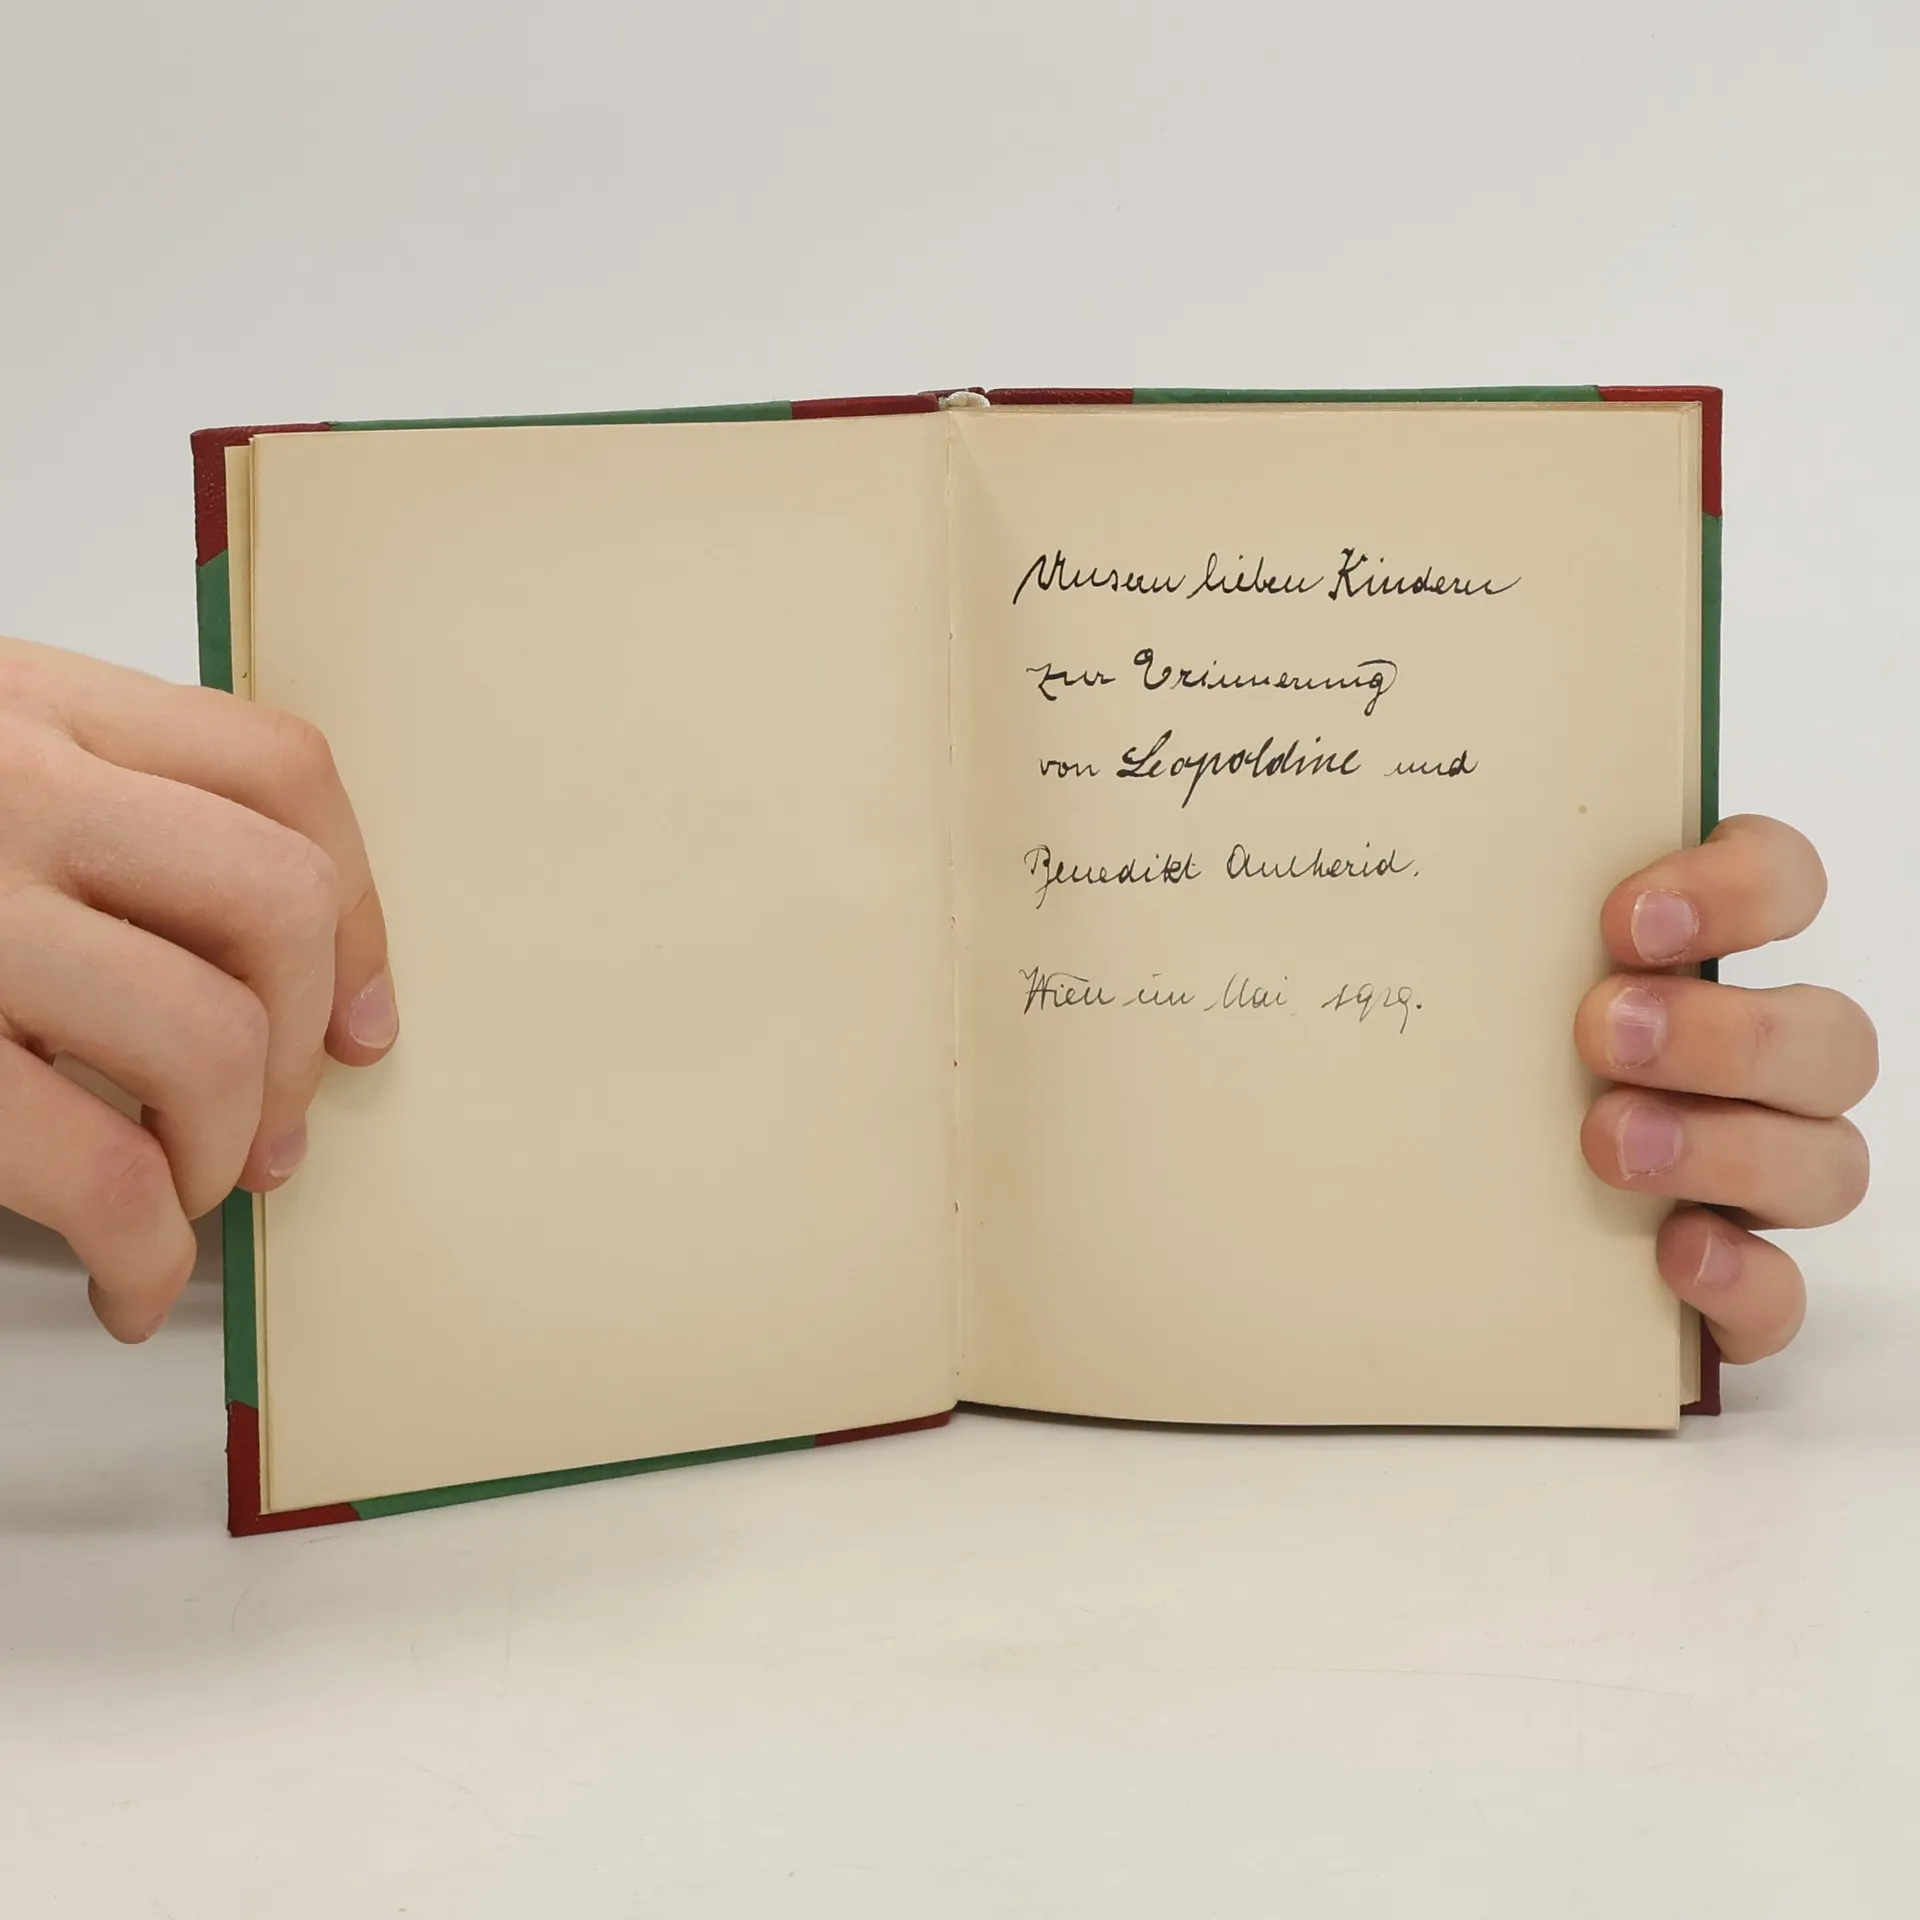 Unsern lieben Kindern
zur Erinnerung
von Leopoldine und
Benedikt
Wien im Mai